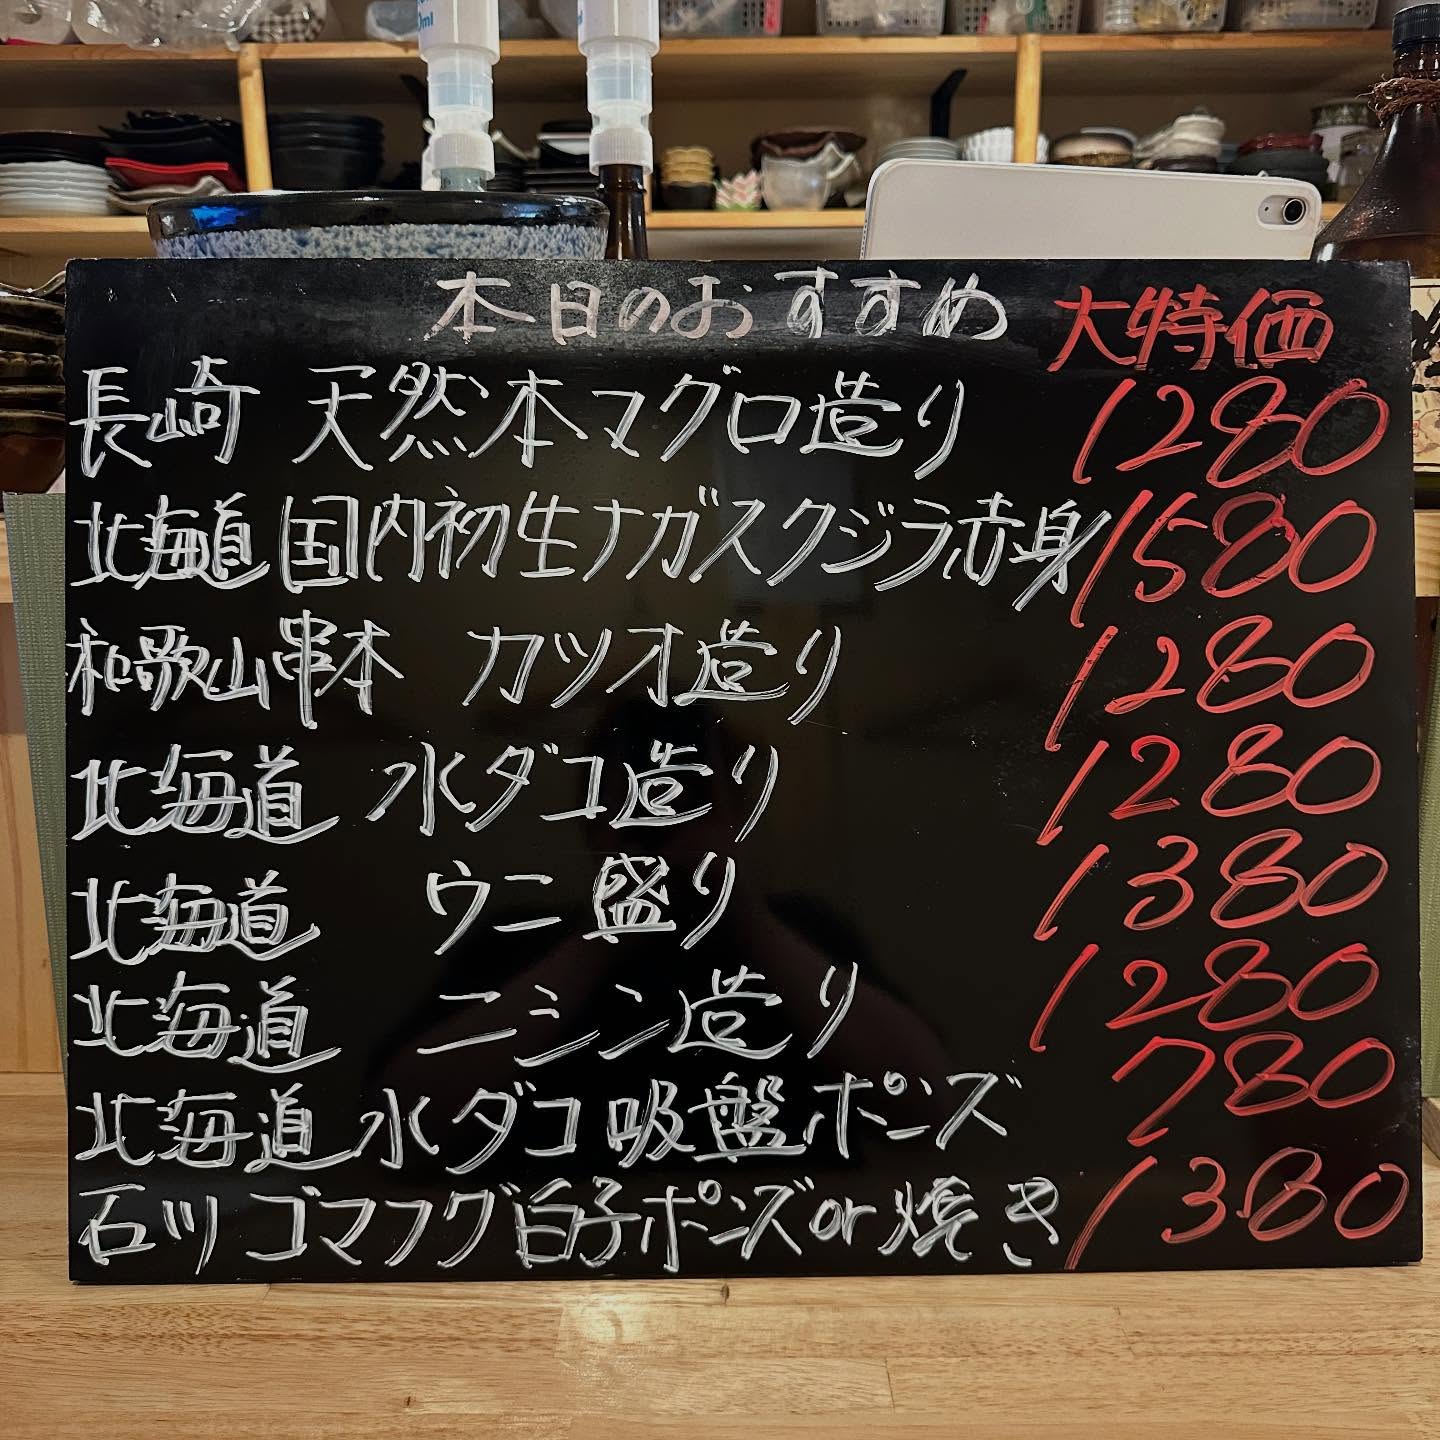 本日のおすすめ 大特価
長崎 天然本マグロ造り 1280
北海道 国内初生ナガスクジラ赤身 1580
和歌山串本 カツオ造り 1280
北海道 水ダコ造り 1280
北海道 ウニ盛り 1380
北海道 ニシン造り 1280
北海道水ダコ吸盤ポンズ 780
石川 ゴマフグ白子ポンズor焼き 1380